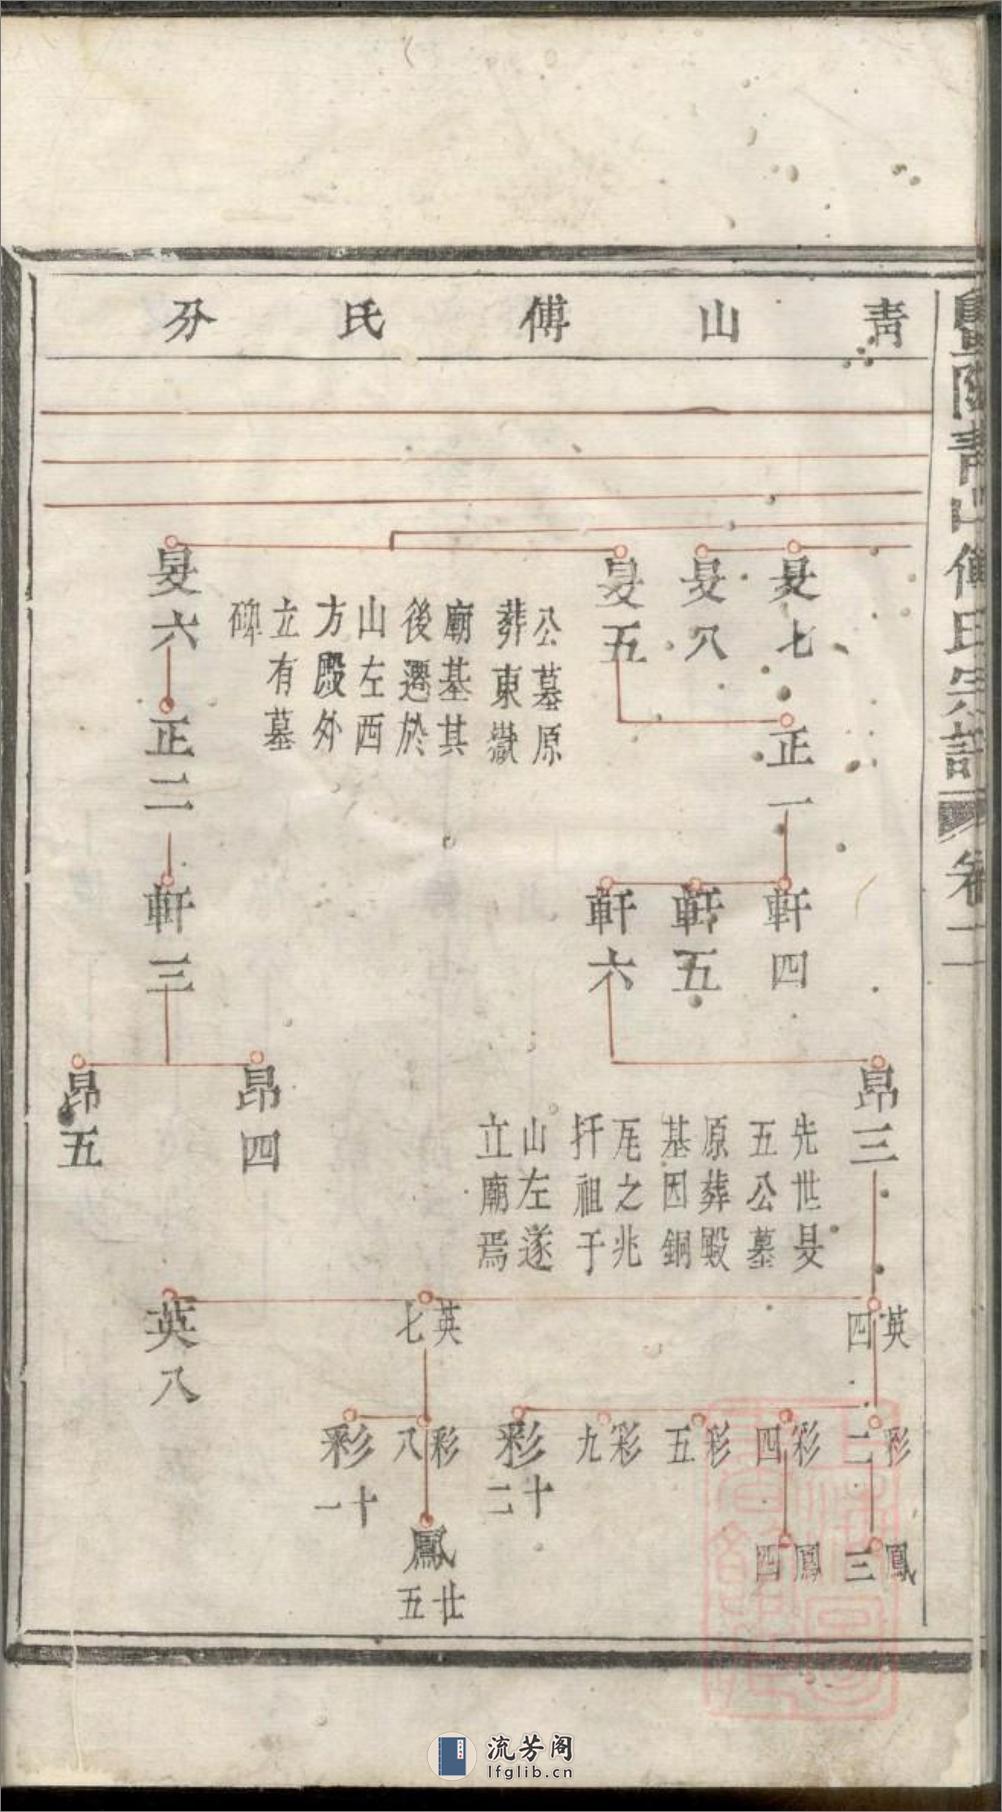 暨陽青山傅氏宗譜 卷二
青山傅氏分
旻七
旻八
旻五
公墓原
葬東嶽
廟基其
後遷於
山左西
方殿外
立有墓
碑
旻六
正一
正二
軒四
軒五
軒六
軒三
昂三
先世旻
五公墓
原葬殿
基因銅
瓦之兆
扦祖于
山左遂
立廟焉
昂四
昂五
英四
英七
英八
彩二
彩四
彩五
彩九
彩十二
彩八
彩十一
鳳三
鳳四
鳳廿五
流芳阁
lfglib.cn